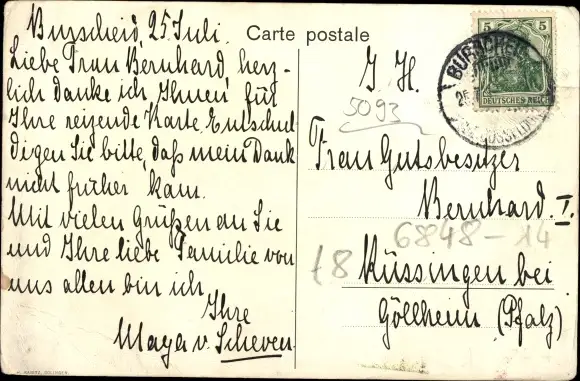 Burscheid, 25. Juli.
Liebe Frau Bernhard, herz-
lich danke ich Ihnen für
Ihre reizende Karte. Entschul
digen Sie bitte, daß mein Dank
nicht früher kam.
Mit vielen Grüßen an Sie
und Ihre liebe Familie von
uns allen bin ich
Ihre
Maya v. Scheven.
Carte postale
I. H.
5093
Frau Gutsbesitzer
Bernhard. I.
6848-14
18
Rüssingen bei
Göllheim (Pfalz)
5 5
DEUTSCHES REICH
BURSCHEID